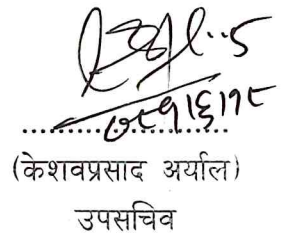 ०८१।६।१८
....................
(केशवप्रसाद अर्याल)
उपसचिव